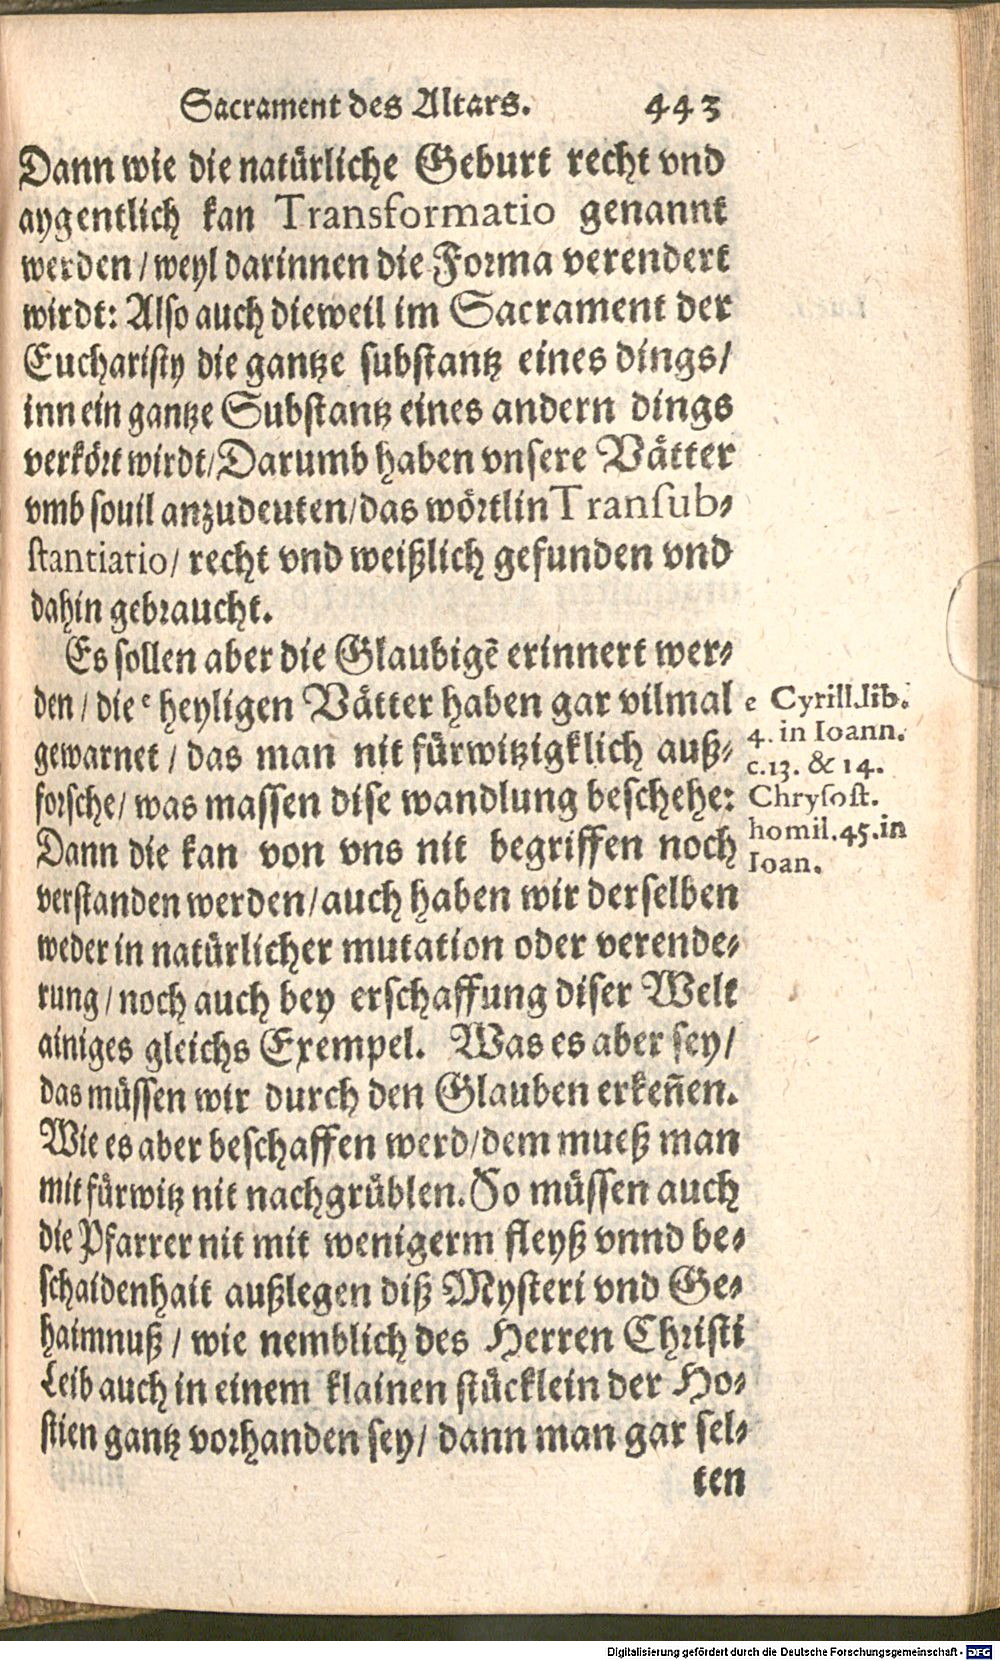 Sacrament des Altars. 443
Dann wie die natürliche Geburt recht vnd
aygentlich kan Transformatio genannt
werden / weyl darinnen die Forma verendert
wirdt: Also auch dieweil im Sacrament der
Eucharisty die gantze substantz eines dings/
inn ein gantze Substantz eines andern dings
verkört wirdt/Darumb haben vnsere Vätter
vmb souil anzudeuten/das wörtlin Transub⸗
stantiatio/ recht vnd weißlich gefunden vnd
dahin gebraucht.
Es sollen aber die Glaubigẽ erinnert wer⸗
den / die ᵉ heyligen Vätter haben gar vilmal
gewarnet / das man nit fürwitzigklich auß⸗
forsche/ was massen dise wandlung beschehe:
Dann die kan von vns nit begriffen noch
verstanden werden/auch haben wir derselben
weder in natürlicher mutation oder verende⸗
rung / noch auch bey erschaffung diser Welt
ainiges gleichs Exempel. Was es aber sey/
das müssen wir durch den Glauben erkeñen.
Wie es aber beschaffen werd/dem mueß man
mit fürwitz nit nachgrüblen. So müssen auch
die Pfarrer nit mit wenigerm fleyß vnnd be⸗
schaidenhait außlegen diß Mysteri vnd Ge⸗
haimnuß / wie nemblich des Herren Christi
Leib auch in einem klainen stücklein der Ho⸗
stien gantz vorhanden sey/ dann man gar sel⸗
ten
e Cyrill.lib.
4. in Ioann.
c.13. & 14.
Chrysost.
homil.45.in
Ioan.
Digitalisierung gefördert durch die Deutsche Forschungsgemeinschaft - DFG